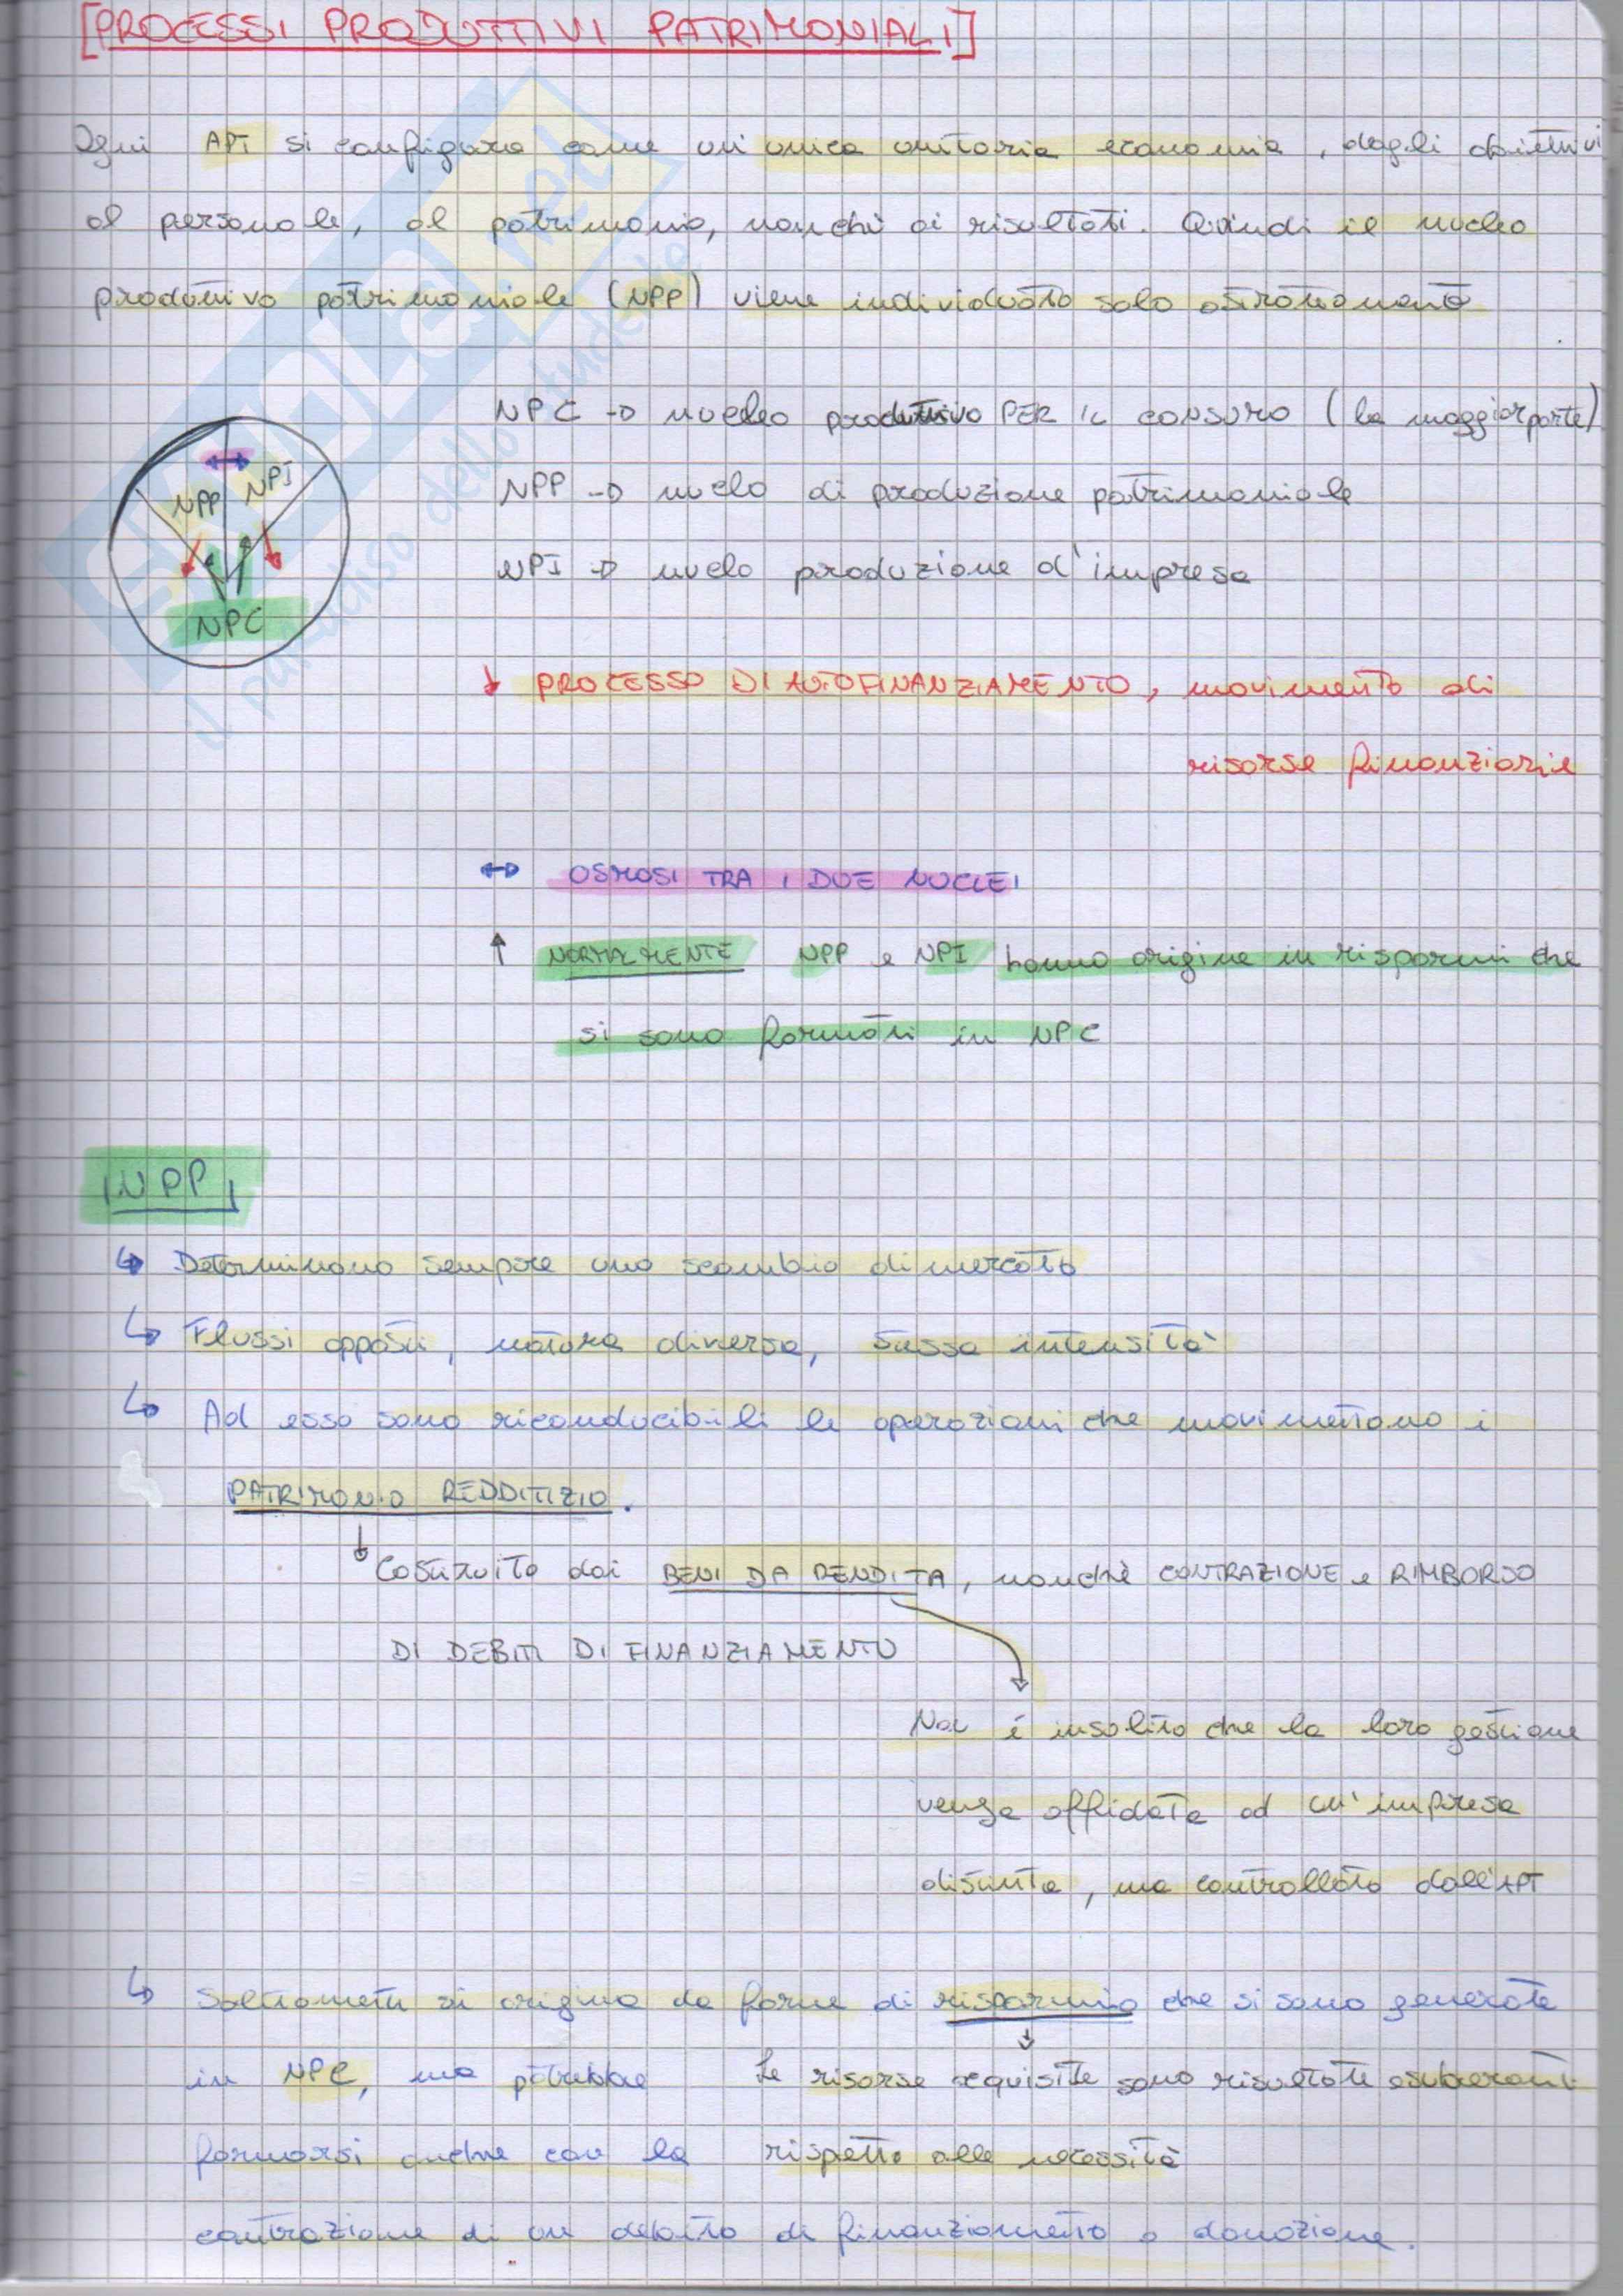 [PROCESSI PRODUTTIVI PATRIMONIALI]
Ogni APT si configura come un'unica unitaria economia, dagli obiettivi
al personale, al patrimonio, nonchè ai risultati. Quindi il nucleo
produttivo patrimoniale (NPP) viene individuato solo astrattamente
NPC → nucleo produttivo PER IL CONSUMO (la maggior parte)
NPP → nucleo di produzione patrimoniale
NPI → nucleo produzione d'impresa
NPP NPI
NPC
↓ PROCESSO DI AUTOFINANZIAMENTO, movimento di
risorse finanziarie
↔ OSMOSI TRA I DUE NUCLEI
↑ NORMALMENTE NPP e NPI hanno origine in risparmi che
si sono formati in NPC
NPP
↳ Determinano sempre uno scambio di mercato
↳ Flussi opposti, natura diversa, stessa intensità
↳ Ad esso sono riconducibili le operazioni che movimentano i
PATRIMONIO REDDITIZIO.
↓ Costituito dai BENI DA RENDITA, nonchè CONTRAZIONE e RIMBORSO
DI DEBITI DI FINANZIAMENTO
Non è insolito che la loro gestione
venga affidata ad un'impresa
distinta, ma controllata dall'APT
↳ Solitamente si origina da forme di risparmio che si sono generate
in NPC, ma potrebbe
formarsi anche con la
contrazione di un debito di finanziamento o donazione.
↓
Le risorse acquisite sono risultate esuberanti
rispetto alle necessità
SKUOLA.net
il paradiso dello studente